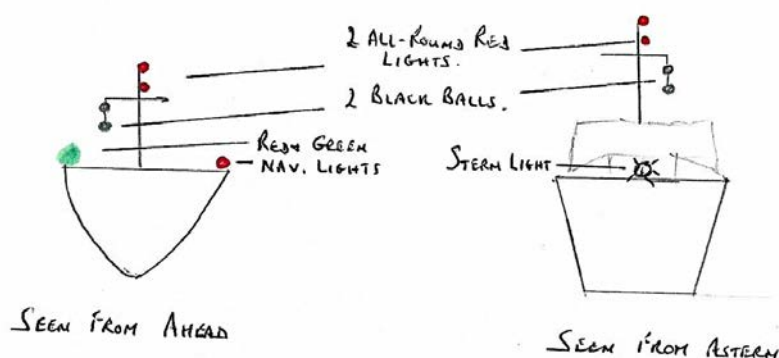 2 ALL-ROUND RED
LIGHTS.
2 BLACK BALLS.
RED & GREEN
NAV. LIGHTS
STERN LIGHT
SEEN FROM AHEAD
SEEN FROM ASTERN